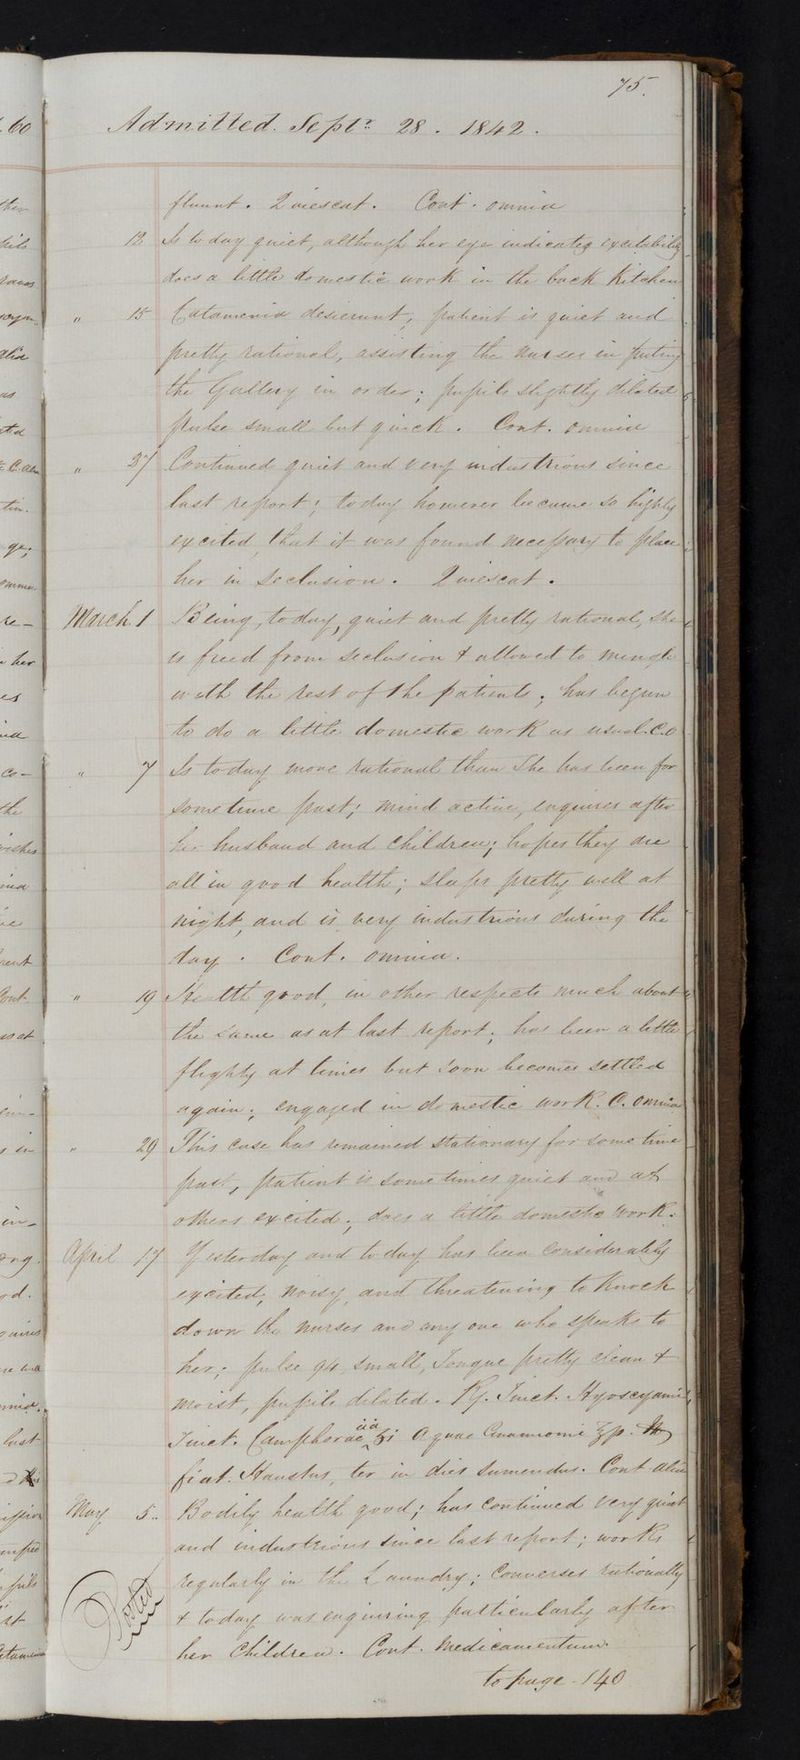 75.
Admitted. Septr. 28. 1842.
fluunt. Quiescat. Cont. omnia
12 Is to day quiet, although her eye indicates excitability
does a little domestic work in the back Kitchen
" 15 Catamenia desierunt, patient is quiet and
pretty rational, assisting the nurses in puting
the Gallery in order; pupils slightly dilated
pulse small but quick. Cont. omnia
" 27 Continued quiet and very industrious since
last report; to day however became so highly
excited, that it was found necessary to place
her in seclusion. Quiescat.
March 1 Being, to day, quiet and pretty rational, she
is freed from seclusion & allowed to mingle
with the rest of the patients; has begun
to do a little domestic work as usual. C.O
" 7 Is to day more rational than she has been for
some time past; mind active, enquires after
her husband and children; hopes they are
all in good health; sleeps pretty well at
night, and is very industrious during the
day. Cont. omnia.
" 19 Health good, in other respects much about
the same as at last report; has been a little
flighty at times but soon becomes settled
again; engaged in domestic work. C. omnia
" 29 This case has remained stationary for some time
past, patient is sometimes quiet and at
others excited; does a little domestic work.
April 17 Yesterday and to day has been considerably
excited, noisy, and threatening to knock
down the nurses and any one who speaks to
her; pulse small, Tongue pretty clean &
moist, pupils dilated. Rx. Tinct. Hyoscyami,
Tinct. Camphorae āā ʒi Aquae Cinnamomi ℥p.
fiat Haustus, ter in dies sumendus. Cont alia
May 5. Bodily health good; has continued very quiet
and industrious since last report; works
regularly in the Laundry; converses rationally
& to day was enquiring particularly after
her children. Cont. Medicamentum.
Posted
to page 140